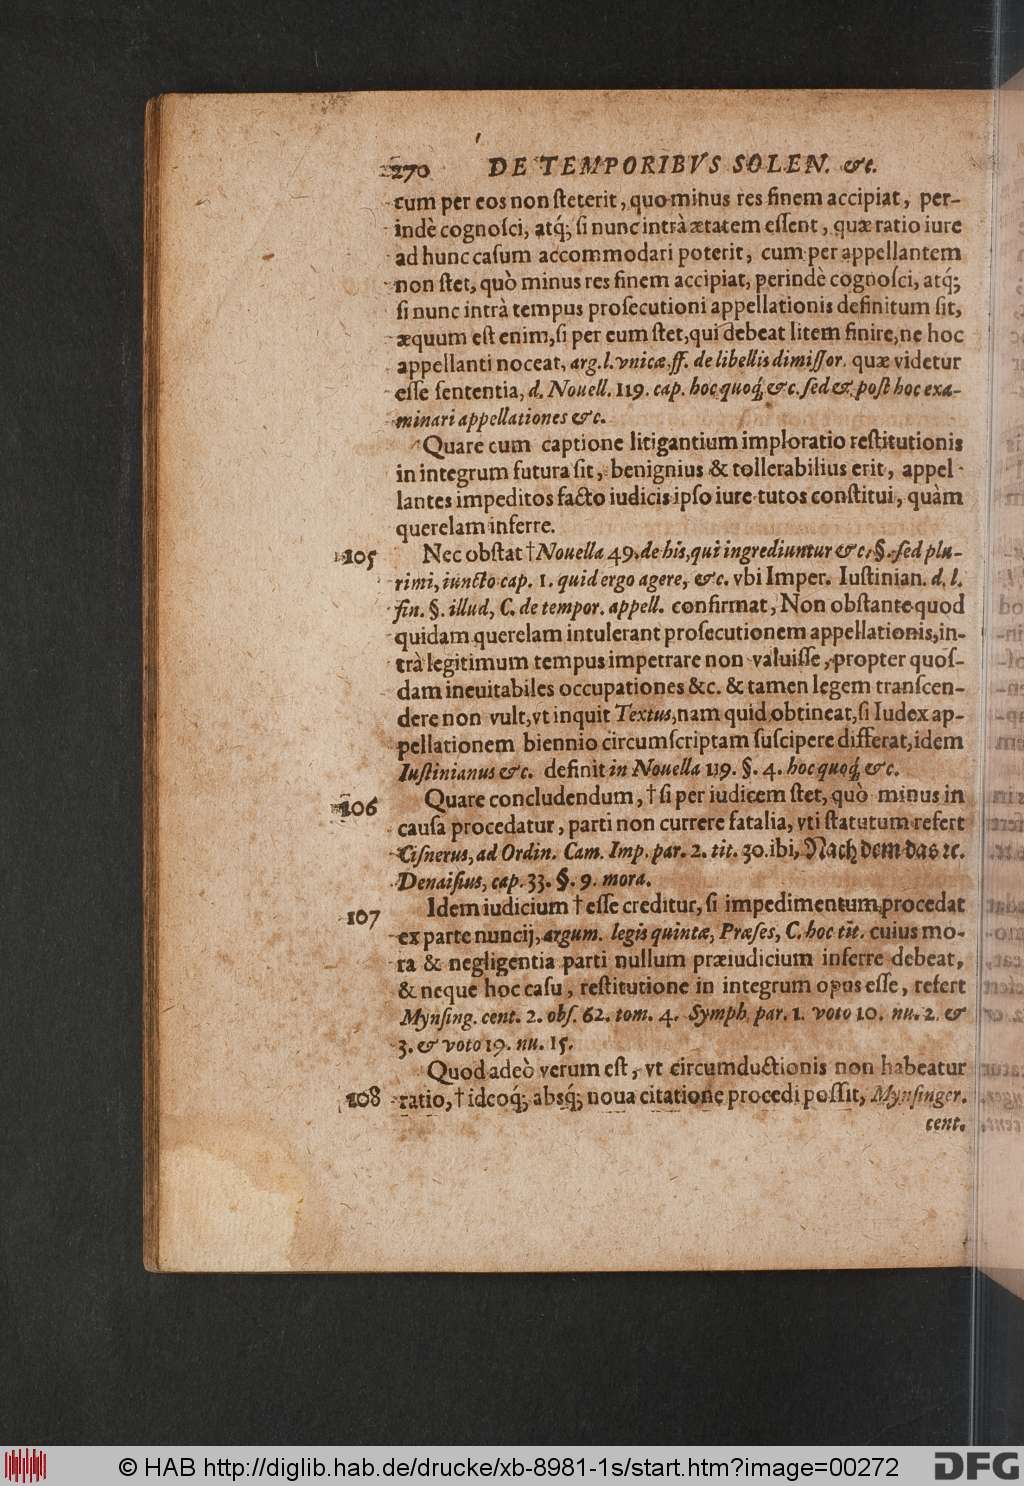 270 DE TEMPORIBVS SOLEN. &c.
cum per eos non ſteterit, quo minus res finem accipiat, per-
indè cognoſci, atq́; ſi nunc intrà ætatem eſſent, quæ ratio iure
ad hunc caſum accommodari poterit, cum per appellantem
non ſtet, quò minus res finem accipiat, perindè cognoſci, atq́;
ſi nunc intrà tempus proſecutioni appellationis definitum ſit,
æquum eſt enim, ſi per eum ſtet, qui debeat litem finire, ne hoc
appellanti noceat, arg. l. vnicæ. ff. de libellis dimiſſor. quæ videtur
eſſe ſententia, d. Nouell. 119. cap. hoc quoq́, &c. ſed & poſt hoc exa-
minari appellationes &c.
Quare cum captione litigantium imploratio reſtitutionis
in integrum futura ſit, benignius & tollerabilius erit, appel-
lantes impeditos facto iudicis ipſo iure tutos conſtitui, quàm
querelam inferre.
105 Nec obſtat † Nouella 49. de his, qui ingrediuntur &c. §. ſed plu-
rimi, iuncto cap. 1. quid ergo agere, &c. vbi Imper. Iuſtinian. d. l.
fin. §. illud, C. de tempor. appell. confirmat, Non obſtante quod
quidam querelam intulerant proſecutionem appellationis, in-
trà legitimum tempus impetrare non valuiſſe, propter quoſ-
dam ineuitabiles occupationes &c. & tamen legem tranſcen-
dere non vult, vt inquit Textus, nam quid obtineat, ſi Iudex ap-
pellationem biennio circumſcriptam ſuſcipere differat, idem
Iuſtinianus &c. definit in Nouella 119. §. 4. hoc quoq́, &c.
106 Quare concludendum, † ſi per iudicem ſtet, quò minus in
cauſa procedatur, parti non currere fatalia, vti ſtatutum refert
Ciſnerus, ad Ordin. Cam. Imp. par. 2. tit. 30. ibi, Nach dem das ꝛc.
Denaiſius, cap. 33. §. 9. mora.
107 Idem iudicium † eſſe creditur, ſi impedimentum procedat
ex parte nuncij, argum. legis quintæ, Præſes, C. hoc tit. cuius mo-
ra & negligentia parti nullum præiudicium inferre debeat,
& neque hoc caſu, reſtitutione in integrum opus eſſe, refert
Mynſing. cent. 2. obſ. 62. tom. 4. Symph. par. 1. voto 10. nu. 2. &
3. & voto 19. nu. 15.
Quod adeò verum eſt, vt circumductionis non habeatur
108 ratio, † ideoq́; absq́; noua citatione procedi poſſit, Mynſinger.
cent.
© HAB http://diglib.hab.de/drucke/xb-8981-1s/start.htm?image=00272
DFG